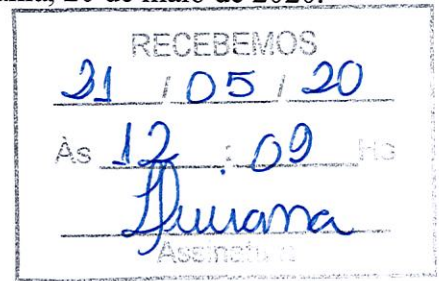 de maio de 2020.
RECEBEMOS
21 / 05 / 20
Às 12 : 09 Hs
Assinatura